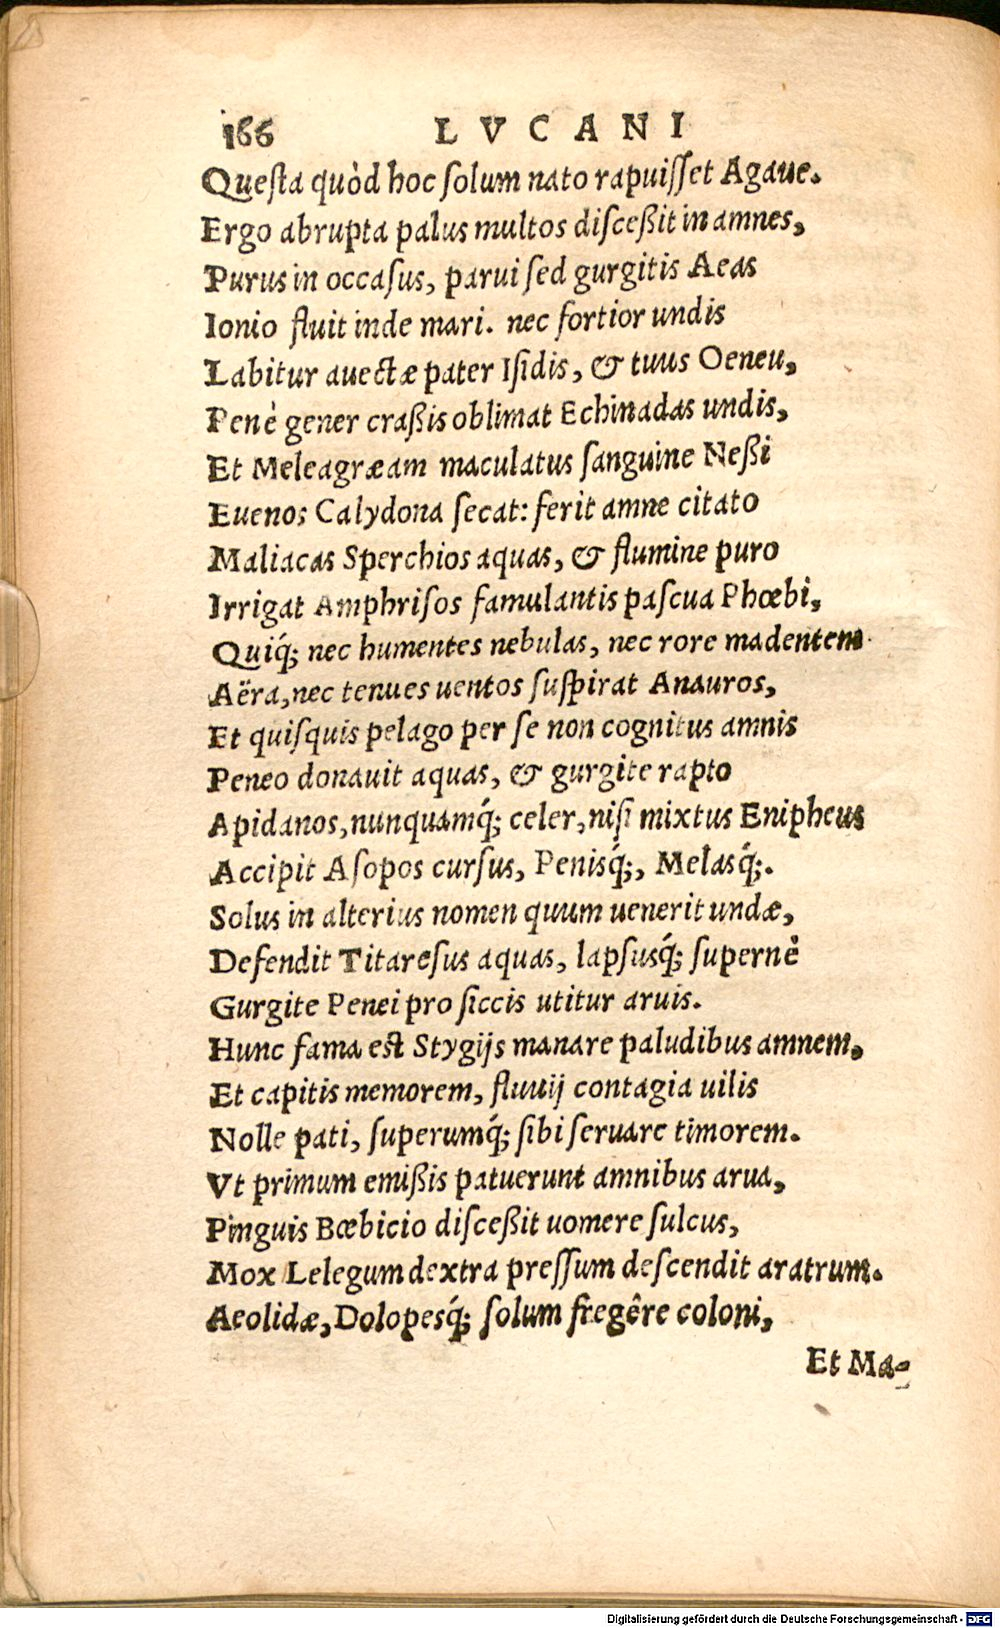 166 LVCANI
Questa quòd hoc solum nato rapuisset Agaue.
Ergo abrupta palus multos disceßit in amnes,
Purus in occasus, parui sed gurgitis Aeas
Ionio fluit inde mari. nec fortior undis
Labitur auectæ pater Isidis, & tuus Oeneu,
Penè gener craßis oblimat Echinadas undis,
Et Meleagræam maculatus sanguine Neßi
Euenos Calydona secat: ferit amne citato
Maliacas Sperchios aquas, & flumine puro
Irrigat Amphrisos famulantis pascua Phœbi,
Quiq́; nec humentes nebulas, nec rore madentem
Aëra, nec tenues uentos suspirat Anauros,
Et quisquis pelago per se non cognitus amnis
Peneo donauit aquas, & gurgite rapto
Apidanos, nunquamq́; celer, nisi mixtus Enipheus
Accipit Asopos cursus, Penisq́;, Melasq́;.
Solus in alterius nomen quum uenerit undæ,
Defendit Titaresus aquas, lapsusq́; supernè
Gurgite Penei pro siccis utitur aruis.
Hunc fama est Stygijs manare paludibus amnem,
Et capitis memorem, fluuij contagia uilis
Nolle pati, superumq́; sibi seruare timorem.
Vt primum emißis patuerunt amnibus arua,
Pinguis Bœbicio disceßit uomere sulcus,
Mox Lelegum dextra pressum descendit aratrum.
Aeolidæ, Dolopesq́; solum fregêre coloni,
Et Ma-
Digitalisierung gefördert durch die Deutsche Forschungsgemeinschaft - DFG